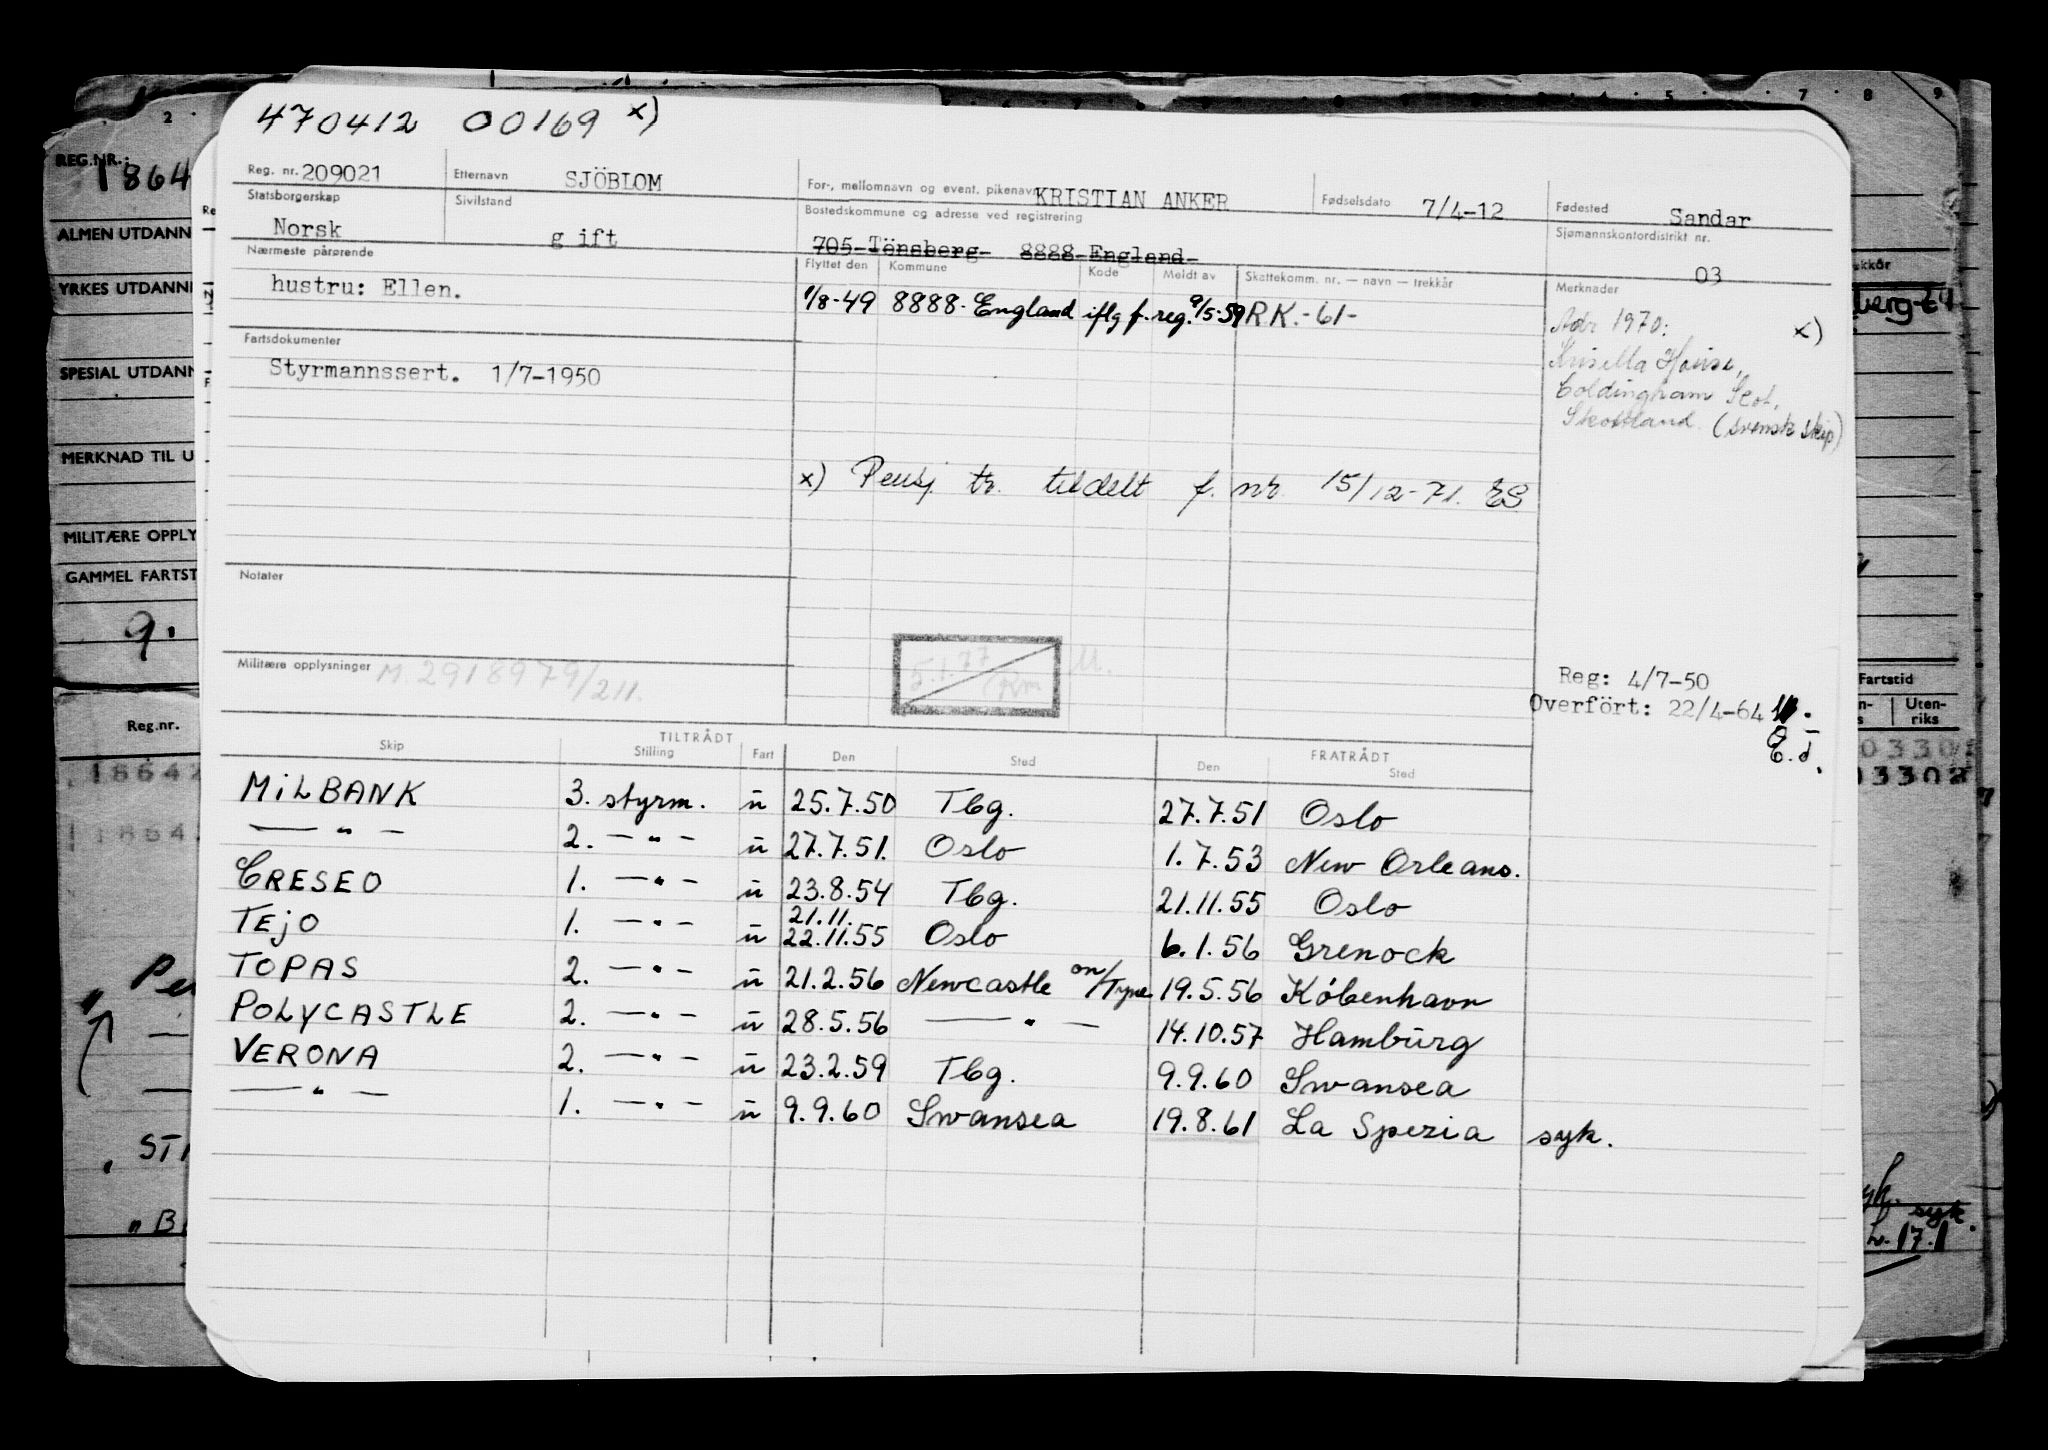 470412 00169 x)
Reg. nr. 209021 Etternavn SJÖBLOM For-, mellomnavn og event. pikenavn KRISTIAN ANKER Fødselsdato 7/4-12 Fødested Sandar
Statsborgerskap Norsk Sivilstand gift Bostedskommune og adresse ved registrering 705-Tönsberg- 8888-England- Sjømannskontordistrikt nr. 03
Nærmeste pårørende Flyttet den Kommune Kode Meldt av Skattekomm. nr. — navn — trekkår Merknader
hustru: Ellen. 1/8-49 8888-England iflg f.reg. 9/5-59 RK.-61-
Adr 1970: x)
House,
Coldingham
Skottland (svensk skip)
Fartsdokumenter
Styrmannssert. 1/7-1950
x) Pensj. tr. tildelt f. nr. 15/12-71. ES
Notater
Militære opplysninger M.2918979/211.
5.1.77
Reg: 4/7-50
Overfört: 22/4-64
E.d.
TILTRÅDT FRATRÅDT
Skip Stilling Fart Den Sted Den Sted
MILBANK 3. styrm. u 25.7.50 Tbg. 27.7.51 Oslo
—"— 2. —"— u 27.7.51. Oslo 1.7.53 New Orleans.
CRESEO 1. —"— u 23.8.54 Tbg. 21.11.55 Oslo
21.11.
TEJO 1. —"— u 22.11.55 Oslo 6.1.56 Grenock
TOPAS 2. —"— u 21.2.56 Newcastle on/Tyne 19.5.56 København
POLYCASTLE 2. —"— u 28.5.56 —"— 14.10.57 Hamburg
VERONA 2. —"— u 23.2.59 Tbg. 9.9.60 Swansea
—"— 1. —"— u 9.9.60 Swansea 19.8.61 La Spezia syk.
REG.NR.:
1864
ALMEN UTDANN
YRKES UTDANN
SPESIAL UTDANN
MERKNAD TIL U
MILITÆRE OPPLY
GAMMEL FARTST
9.
Reg.nr.
18642
1864
Pe
ST
B
berg-
Fartstid
Uten-
riks
03302
03302
syk.
17.1